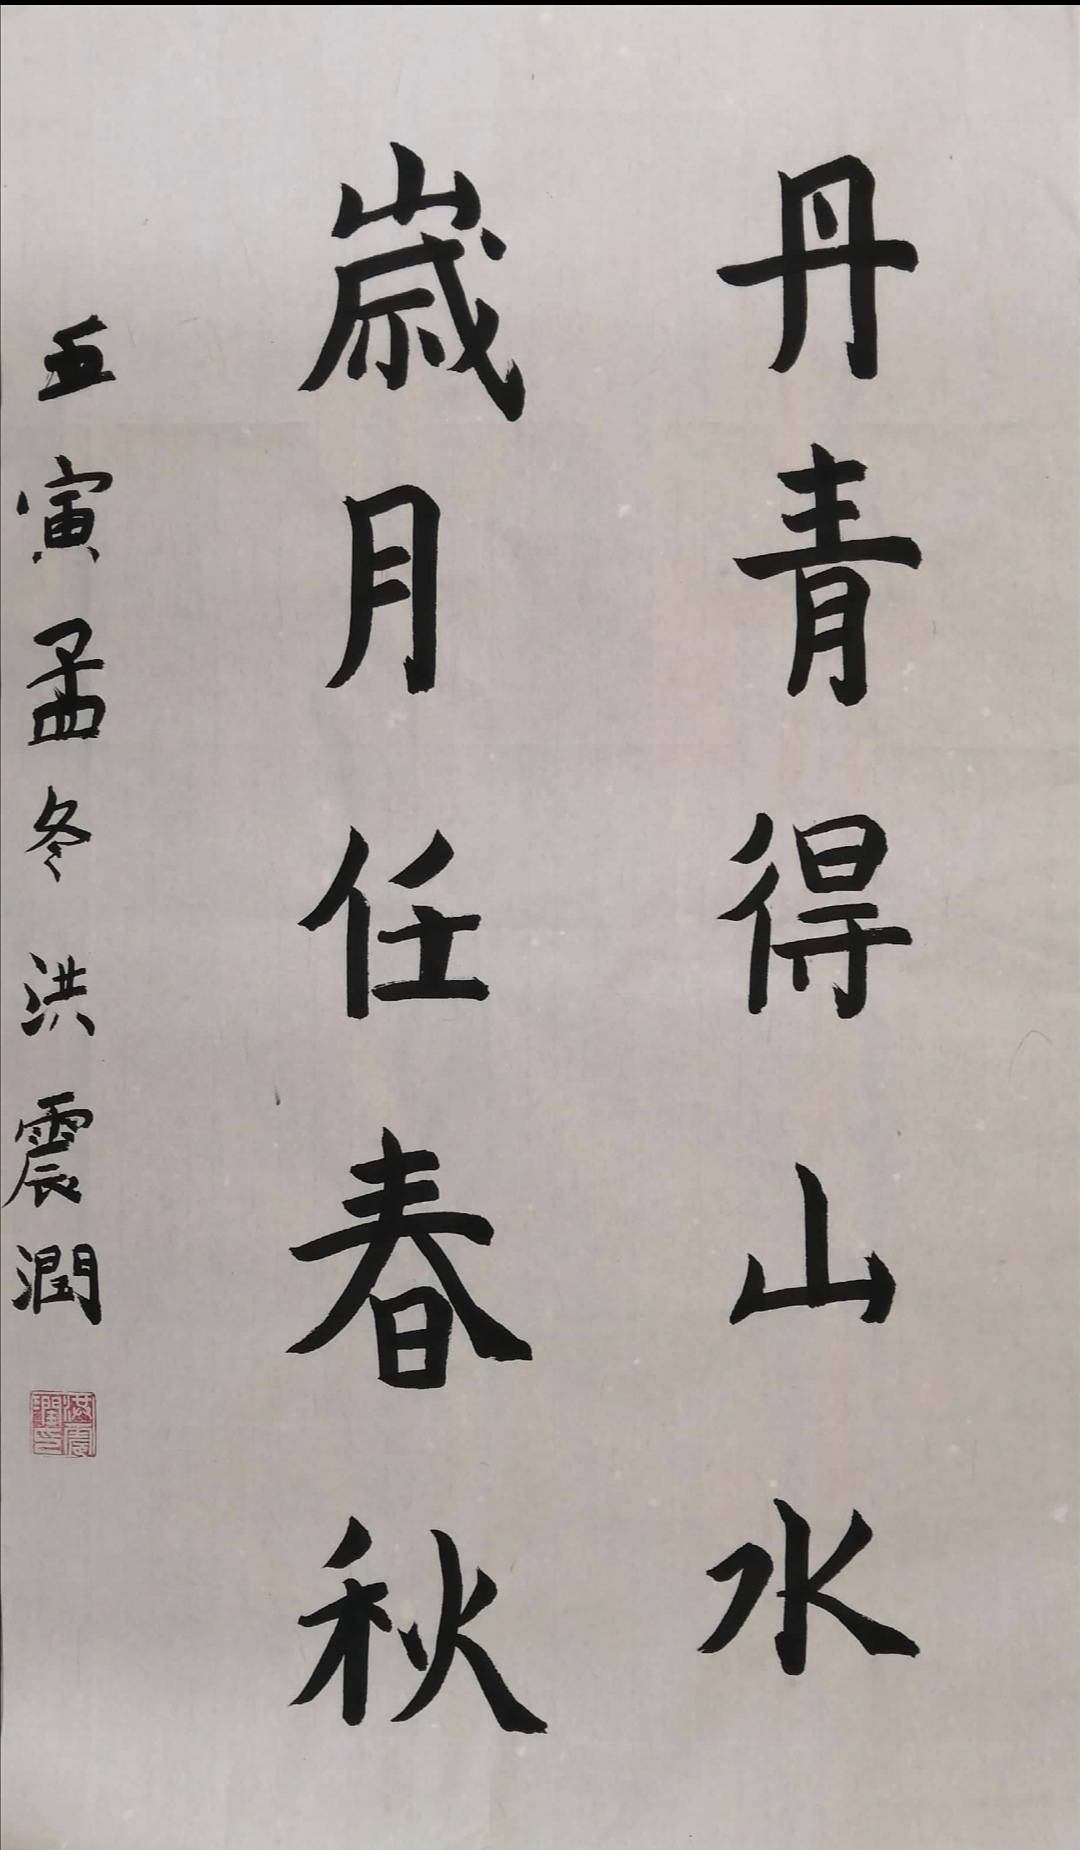 丹青得山水
歳月任春秋
壬寅孟冬洪震潤
洪震潤印